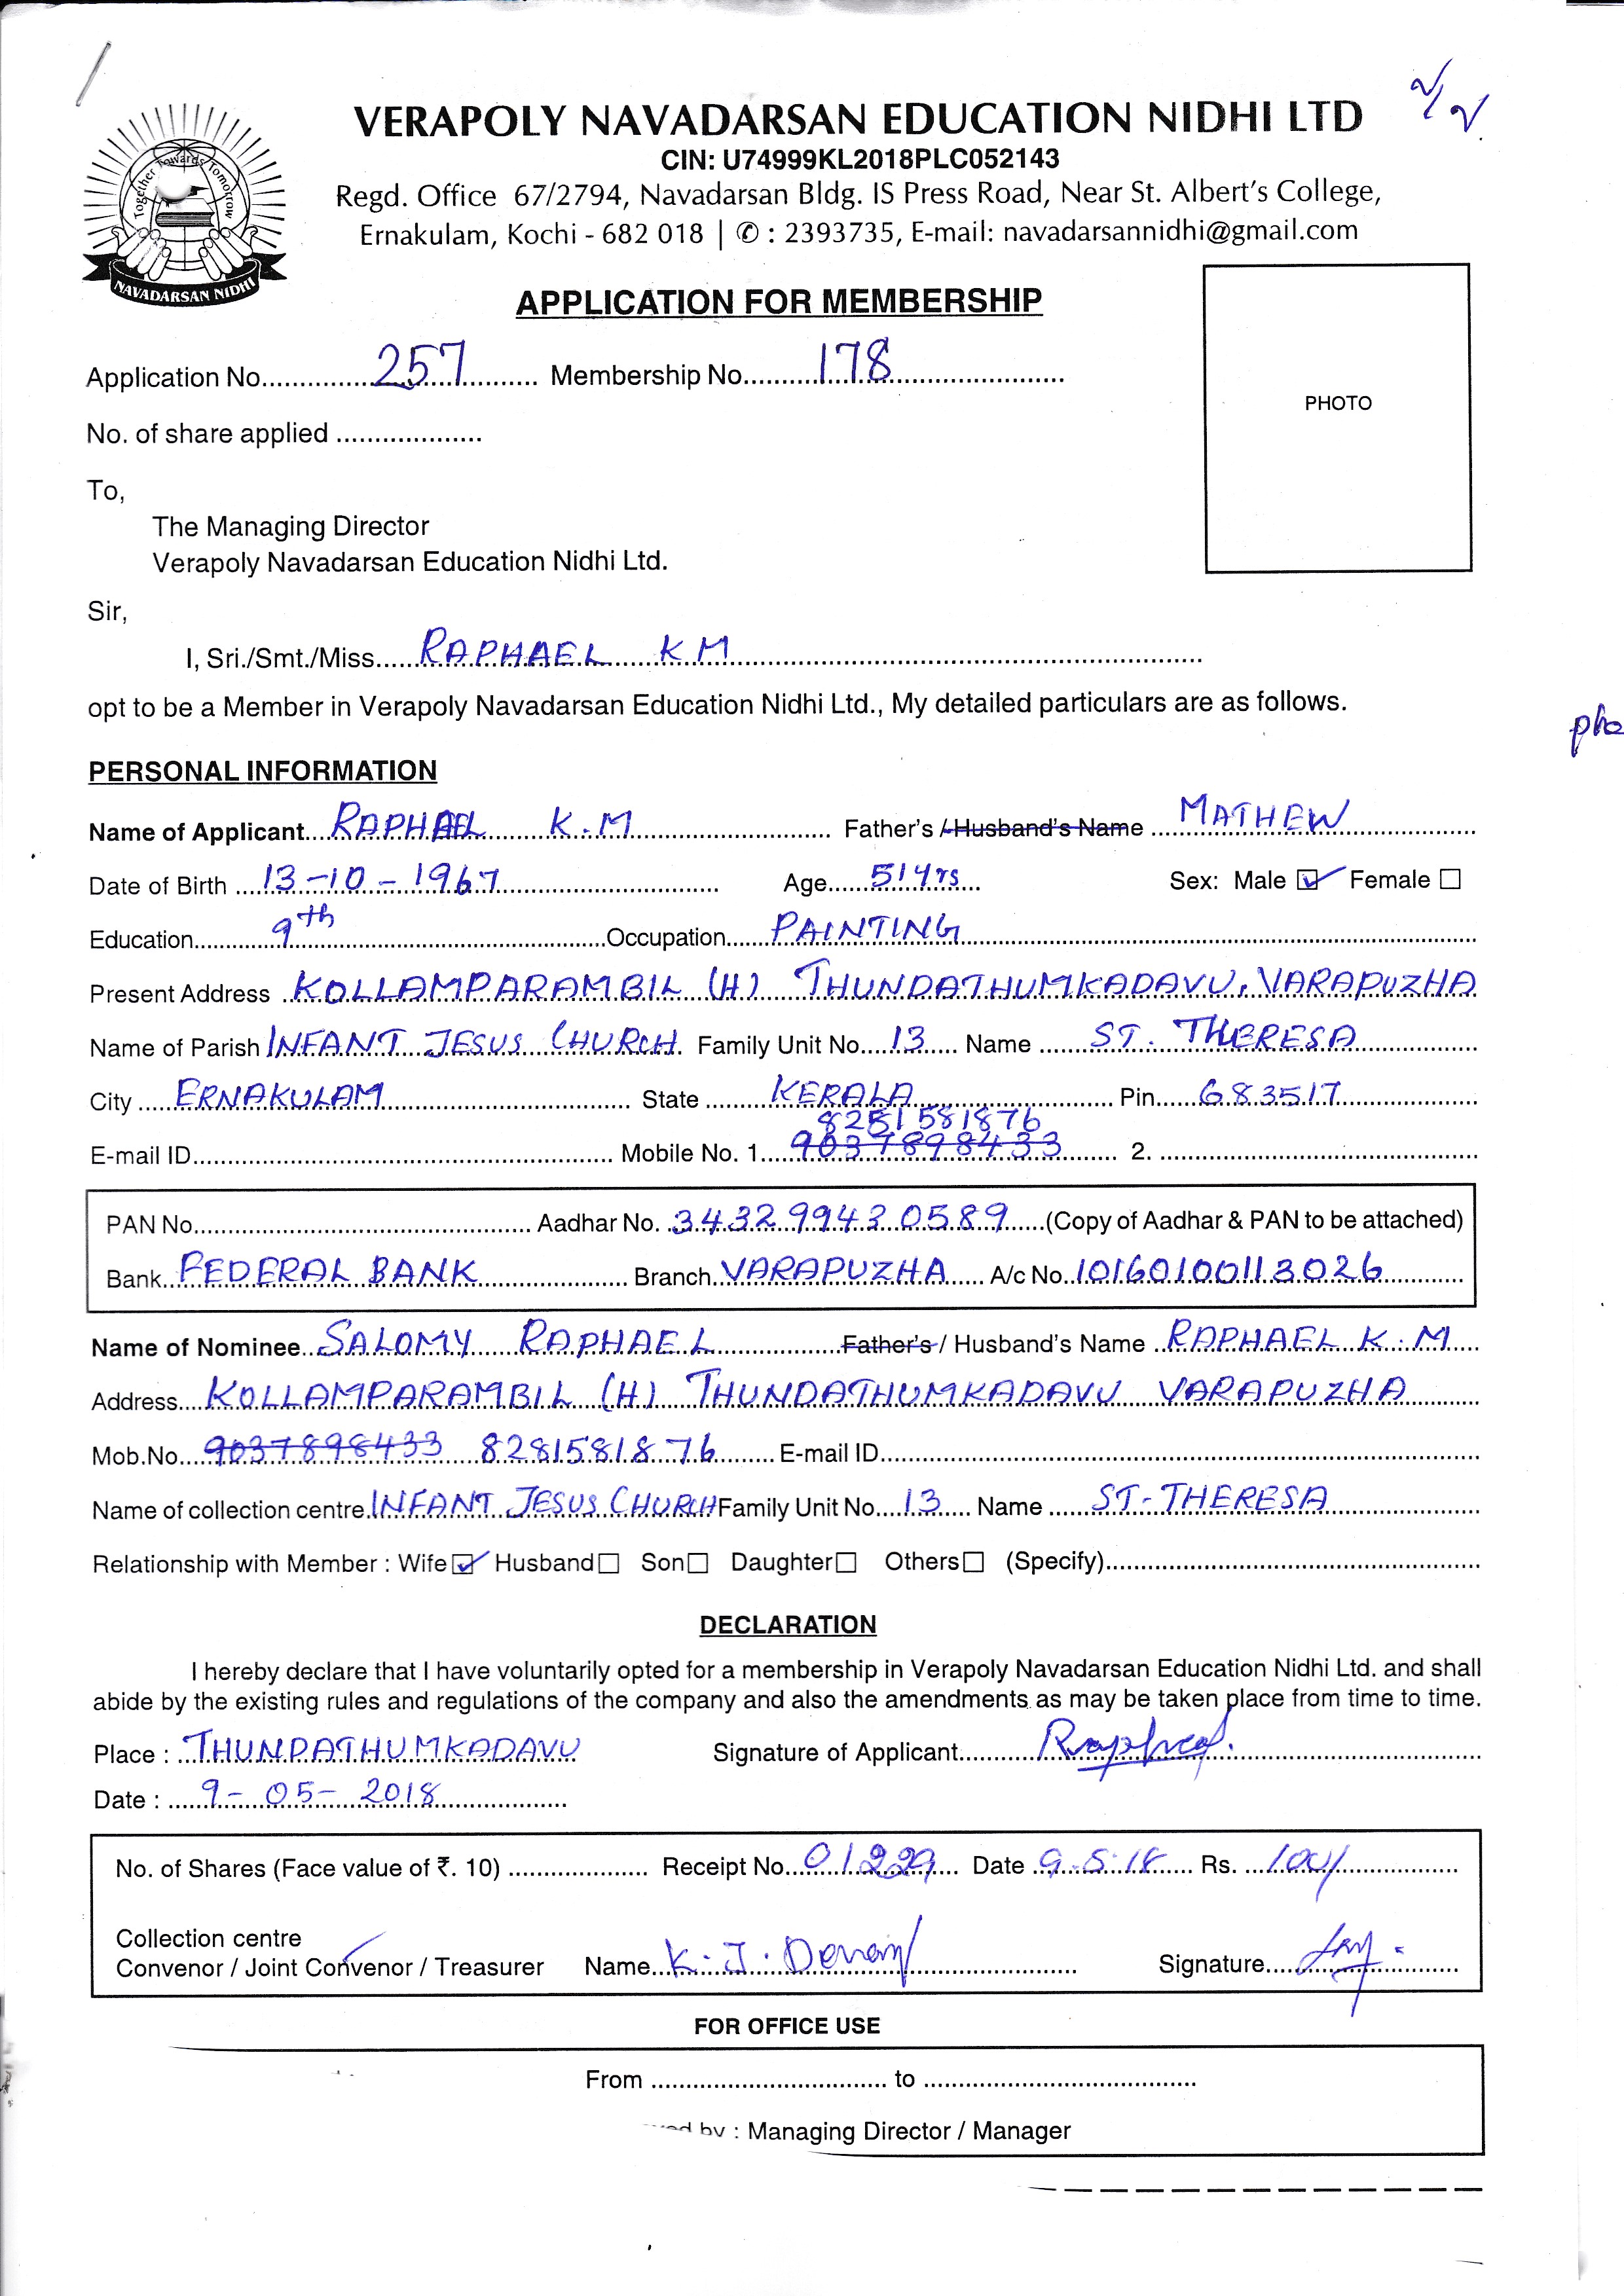 VERAPOLY NAVADARSAN EDUCATION NIDHI LTD
CIN: U74999KL2018PLC052143
Regd. Office 67/2794, Navadarsan Bldg. IS Press Road, Near St. Albert's College,
Ernakulam, Kochi - 682 018 | ✆ : 2393735, E-mail: navadarsannidhi@gmail.com
Together Towards Tomorrow
NAVADARSAN NIDHI
APPLICATION FOR MEMBERSHIP
Application No. 257 Membership No. 178
No. of share applied
PHOTO
To,
The Managing Director
Verapoly Navadarsan Education Nidhi Ltd.
Sir,
I, Sri./Smt./Miss. RAPHAEL K M
opt to be a Member in Verapoly Navadarsan Education Nidhi Ltd., My detailed particulars are as follows.
PERSONAL INFORMATION
Name of Applicant RAPHAEL K.M Father's / Husband's Name MATHEW
Date of Birth 13-10-1967 Age 51 yrs Sex: Male ☑ Female ☐
Education 9th Occupation PAINTING
Present Address KOLLAMPARAMBIL (H) THUNDATHUMKADAVU, VARAPUZHA
Name of Parish INFANT JESUS CHURCH Family Unit No. 13 Name ST. THERESA
City ERNAKULAM State KERALA Pin 683517
8281581876
E-mail ID Mobile No. 1. 9037898433 2.
PAN No. Aadhar No. 343299430589 (Copy of Aadhar & PAN to be attached)
Bank FEDERAL BANK Branch VARAPUZHA A/c No. 10160100113026
Name of Nominee SALOMY RAPHAEL Father's / Husband's Name RAPHAEL K.M
Address KOLLAMPARAMBIL (H) THUNDATHUMKADAVU VARAPUZHA
Mob.No. 9037898433 8281581876 E-mail ID
Name of collection centre INFANT JESUS CHURCH Family Unit No. 13 Name ST-THERESA
Relationship with Member : Wife ☑ Husband ☐ Son ☐ Daughter ☐ Others ☐ (Specify)
DECLARATION
I hereby declare that I have voluntarily opted for a membership in Verapoly Navadarsan Education Nidhi Ltd. and shall
abide by the existing rules and regulations of the company and also the amendments as may be taken place from time to time.
Place : THUNDATHUMKADAVU Signature of Applicant Raphael
Date : 9-05-2018
No. of Shares (Face value of ₹. 10) Receipt No. 01229 Date 9.5.18 Rs. 100/
Collection centre
Convenor / Joint Convenor / Treasurer Name K.J. Signature
FOR OFFICE USE
From to
by : Managing Director / Manager